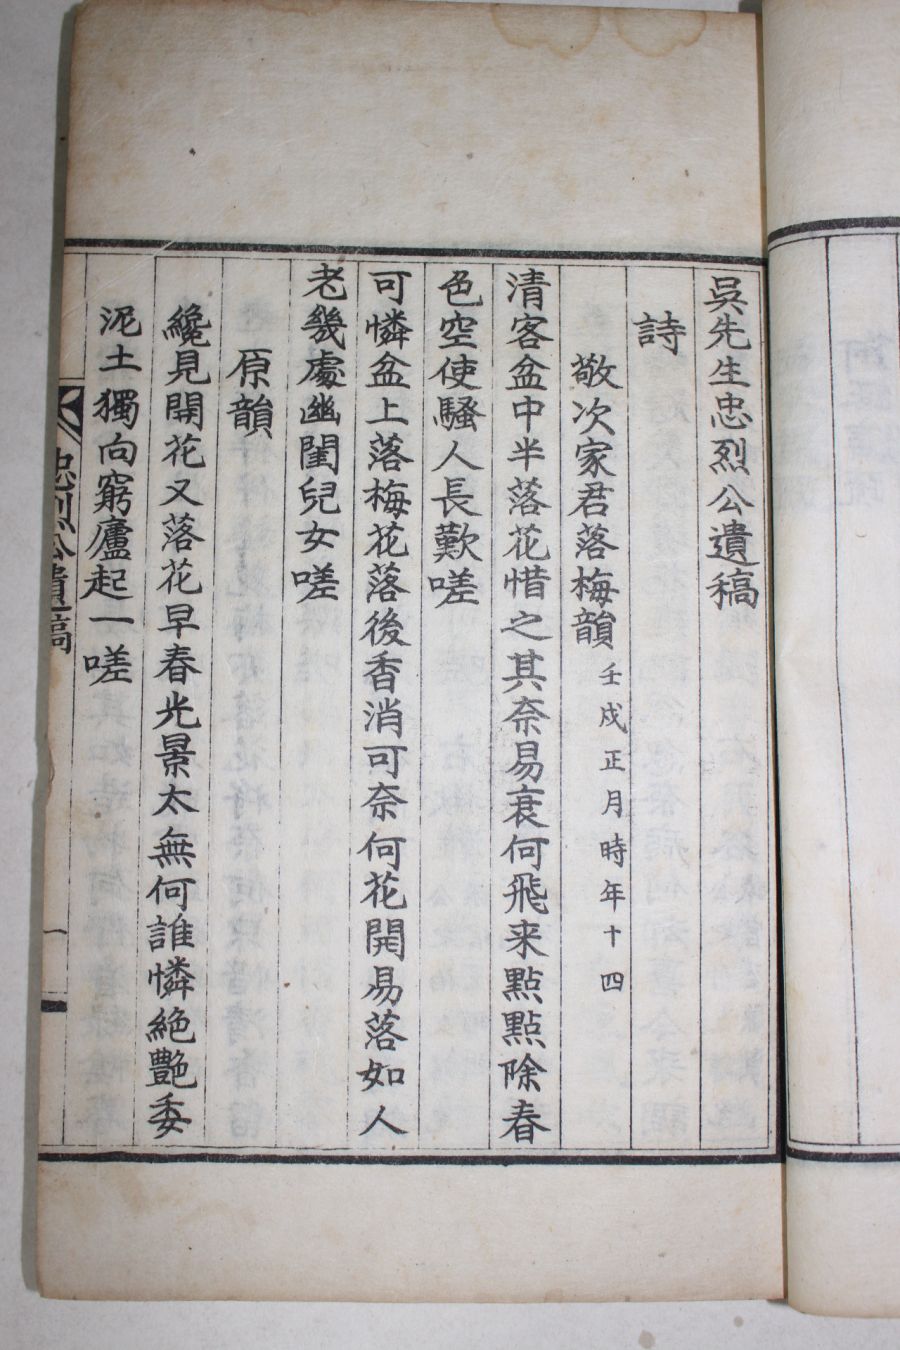 吳先生忠烈公遺稿
詩
敬次家君落梅韻 壬戌正月時年十四
清客盆中半落花惜之其奈易衰何飛来點點除春
色空使騷人長歎嗟
可憐盆上落梅花落後香消可奈何花開易落如人
老幾處幽閨兒女嗟
原韻
纔見開花又落花早春光景太無何誰憐絶艷委
泥土獨向窮廬起一嗟
忠烈公遺稿
一